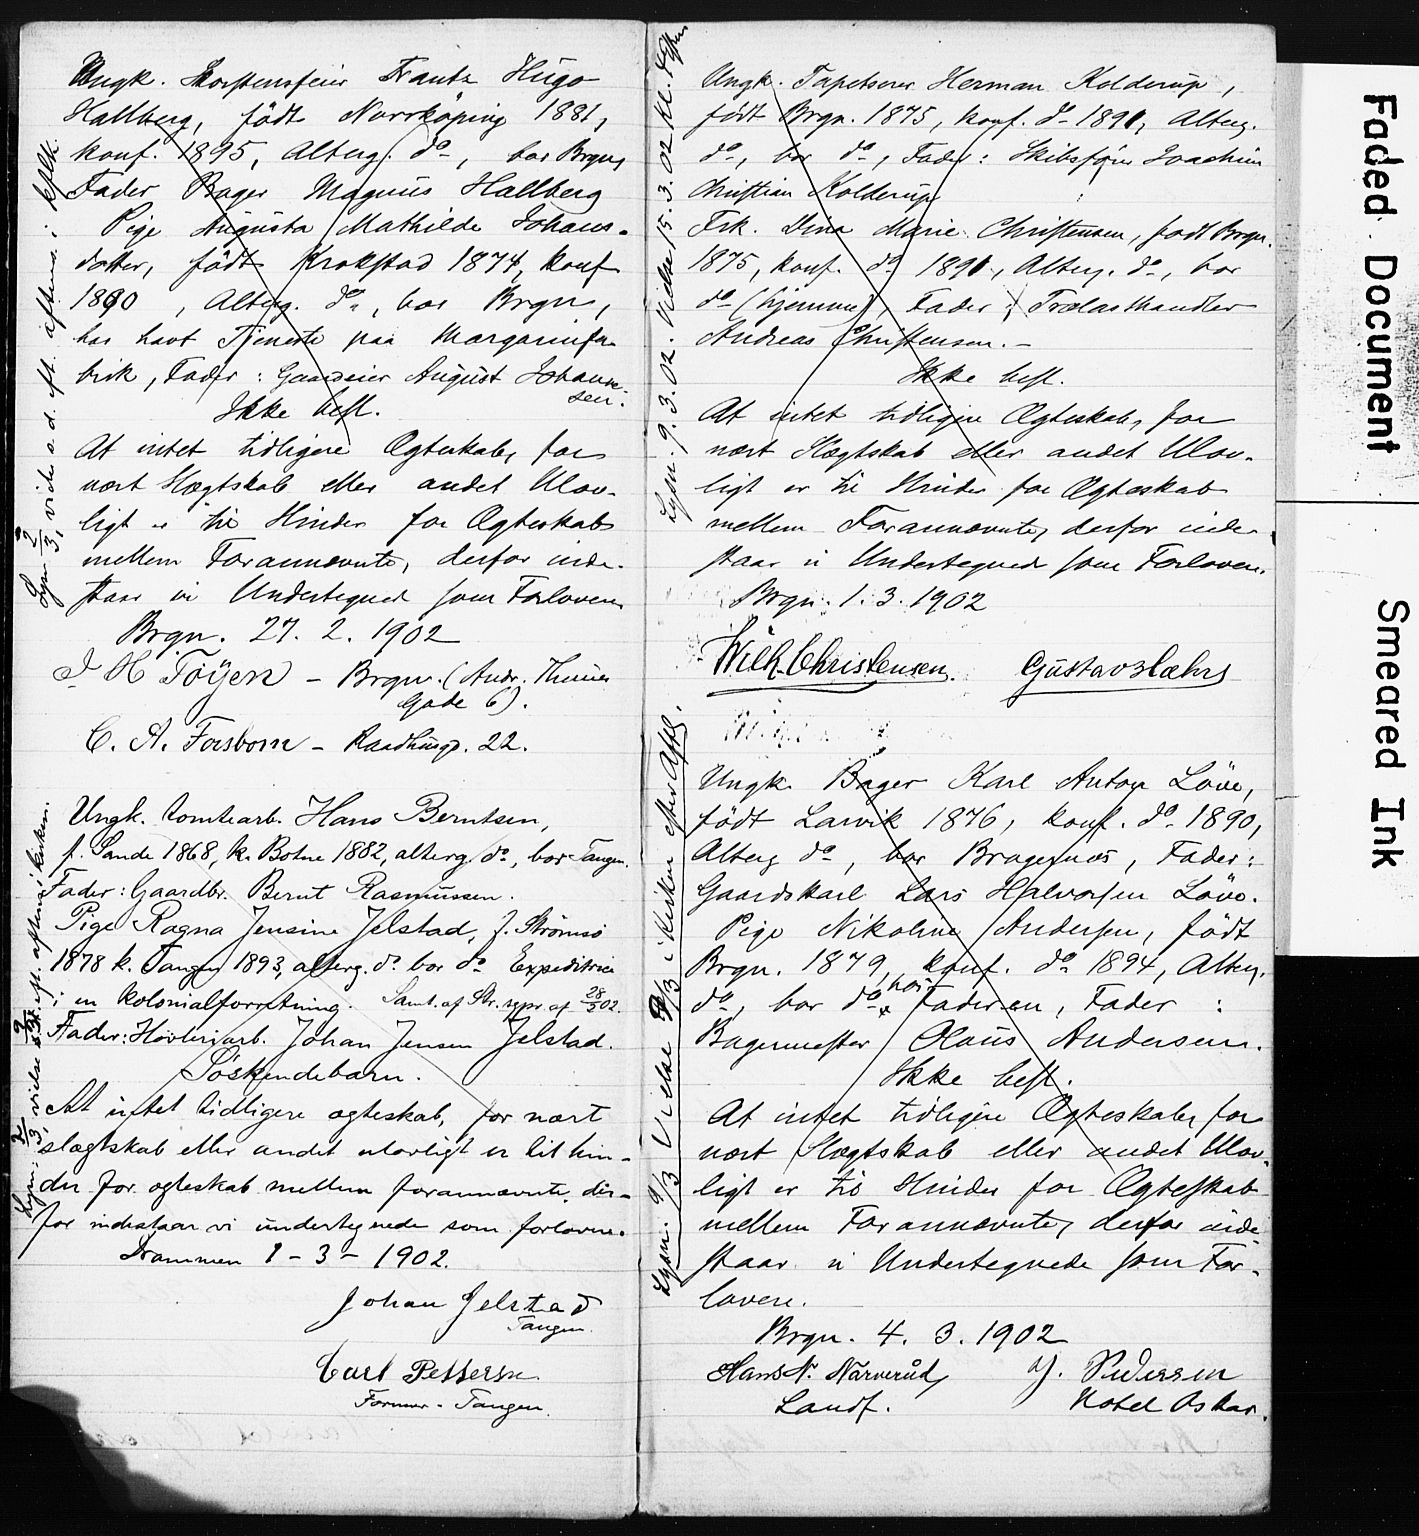 Ungk. Skorstensfeier Frantz Hugo
Hallberg, født Norrköping 1881,
konf. 1895, Alterg. do, bor Brgn,
Fader Bager Magnus Hallberg
Pige Augusta Mathilde Johans-
dotter, født Krokstad 1874, konf
1890, Alterg. do, bor Brgn,
har havt Tjeneste paa Margarinfa-
brik, Fader: Gaardeier August Johans-
sen.
Ikke besl.
At intet tidligere Ægteskab, for
nært Slægtskab eller andet Ulov-
ligt er til Hinder for Ægteskab
mellem Forannævnte, derfor inde-
staar vi Undertegned som Forlovere
Brgn. 27. 2. 1902
J H Töyen - Brgn. (Andr. Thunes
Gade 6).
C. A. Forsbom - Raadhusg. 22.
Ungk. tomtearb. Hans Berntsen,
f. Sande 1868, k. Botne 1882, alterg. do, bor Tangen.
Fader: Gaardbr. Bernt Rasmussen.
Pige Ragna Jensine Jelstad, f. Strømsø
1878 k. Tangen 1893, alterg. do bor do Expeditrice
i en kolonialforretning. Samt. af Str. sgpr. af 28/2 02.
Fader: Høvleriarb. Johan Jensen Jelstad.
Söskendebarn.
At intet tidligere ægteskab, for nært
slægtskab eller andet ulovligt er til hin-
der for ægteskab mellem forannævnte, der-
for indestaar vi undertegnede som forlovere.
Drammen 1 - 3 - 1902.
Johan Jelstad
Tangen.
Carl Pettersen.
Former - Tangen.
Lysn 2/3, vielse s. d. eft. aftens i kirken
Lysn: 2/3, vielse eft. aftens i kirken.
Ungk. Tapetserer Herman Kolderup,
født Brgn. 1875, konf. do 1890, Alterg.
do, bor do, Fader: Skibsfører Joachim
Christian Kolderup
Frk. Dina Marie Christensen, født Brgn.
1875, konf. do 1890, Alterg. do, bor
do (hjemme), Fader: Trælasthandler
Andreas Christensen. -
Ikke besl.
At intet tidligere Ægteskab, for
nært Slægtskab eller andet Ulov-
ligt er til Hinder for Ægteskab
mellem Forannævnte, derfor inde-
staar vi Undertegned som Forlovere.
Brgn. 1. 3. 1902
Wilh. Christensen. Gustav Blæhr
Lysn. 9. 3. 02. Vielse 15. 3. 02 kl. 4 Eftm
Ungk. Bager Karl Anton Löve,
født Larvik 1876, konf. do 1890,
Alterg do, bor Bragernæs, Fader:
Gaardskarl Lars Halvorsen Löve.
Pige Nikoline Andersen, født
Brgn. 1879, konf. do 1894, Alterg.
do, bor do, hos Faderen, Fader:
Bagermester Olaus Andersen.
Ikke besl.
At intet tidligere Ægteskab, for
nært Slægtskab eller andet Ulov-
ligt er til Hinder for Ægteskab
mellem Forannævnte, derfor inde-
staar vi Undertegnede som For-
lovere.
Brgn. 4. 3. 1902
Hans N. Narverud, J. Pedersen
Landf. Hotel Oskar.
Lysn. 9/3 Vielse 9/3 i Kirken efter Aftg.
Faded Document
Smeared Ink